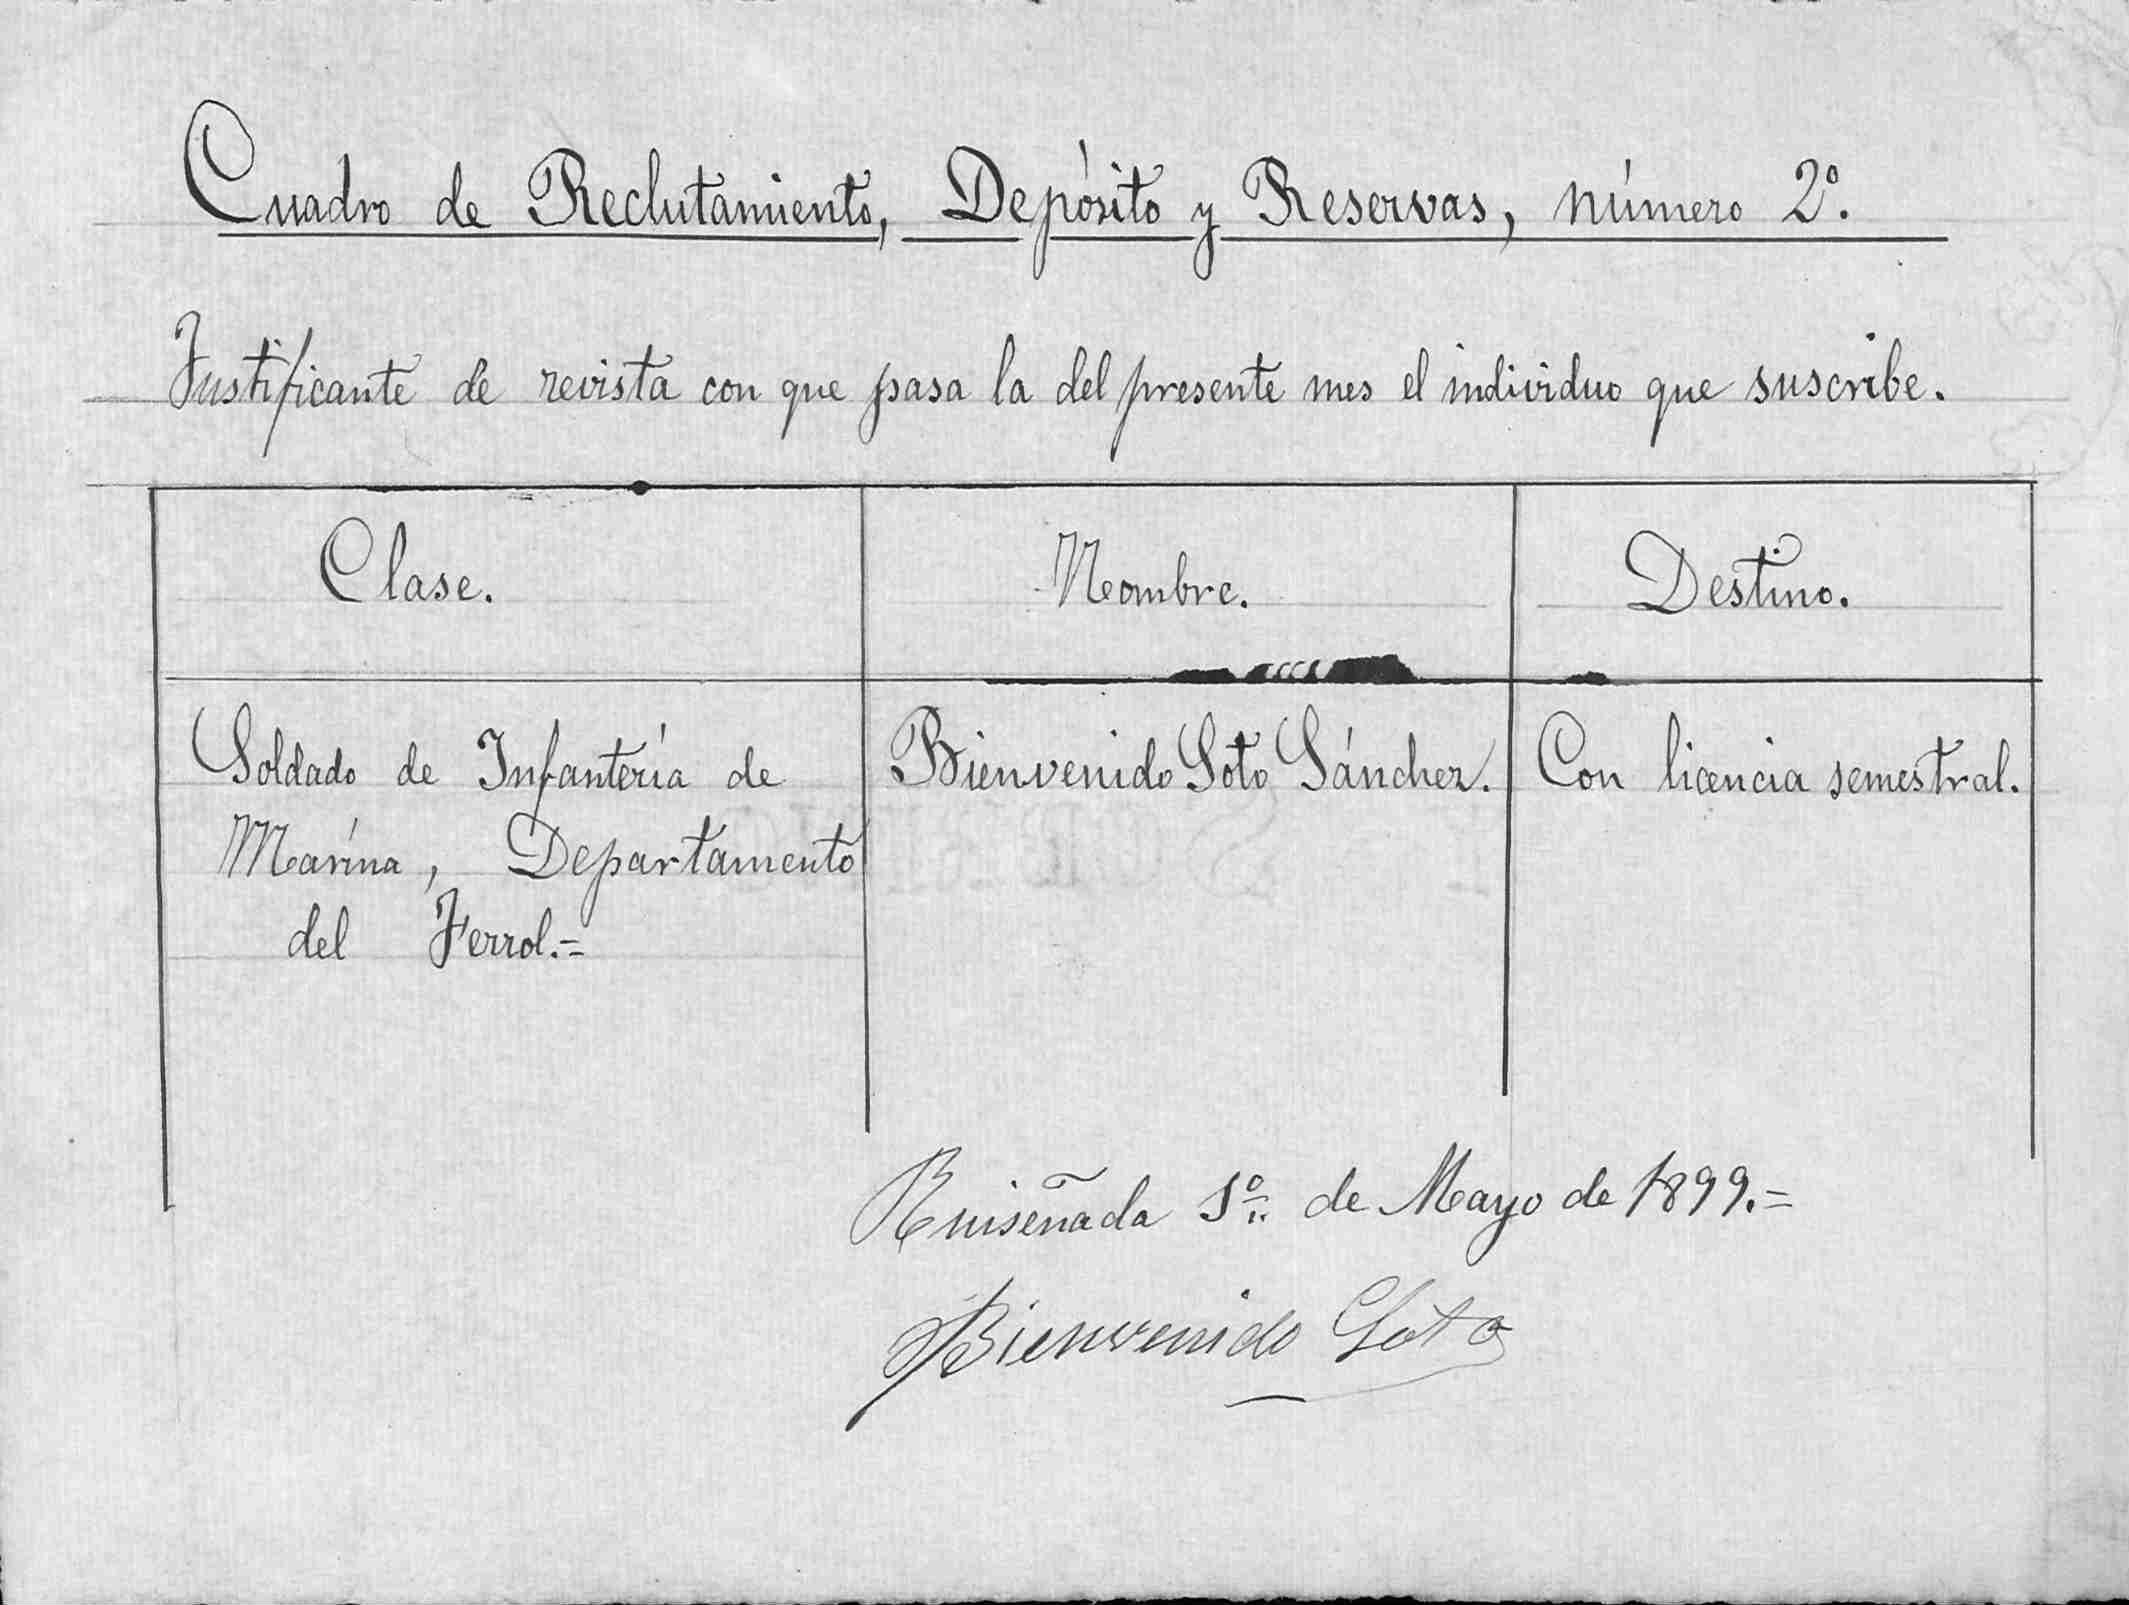 Cuadro de Reclutamiento, Depósito y Reservas, número 2º.
Justificante de revista con que pasa la del presente mes el individuo que suscribe.
Clase. Nombre. Destino.
Soldado de Infantería de Bienvenido Soto Sánchez. Con licencia semestral.
Marína, Departamento
del Ferrol.=
Ruiseñada 1º. de Mayo de 1899.=
Bienvenido Soto